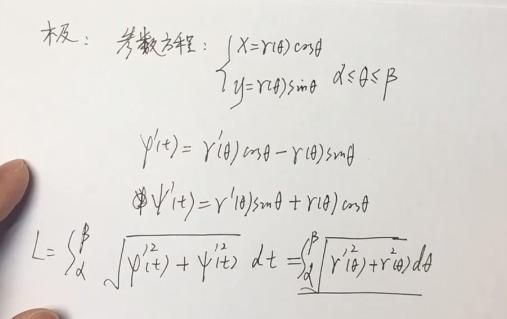 极： 参数方程： { x=r(θ)cosθ
y=r(θ)sinθ α≤θ≤β
φ'(t)=r'(θ)cosθ-r(θ)sinθ
ψ'(t)=r'(θ)sinθ+r(θ)cosθ
L=∫_α^β √(φ'²(t)+ψ'²(t)) dt=∫_α^β √(r'²(θ)+r²(θ)) dθ